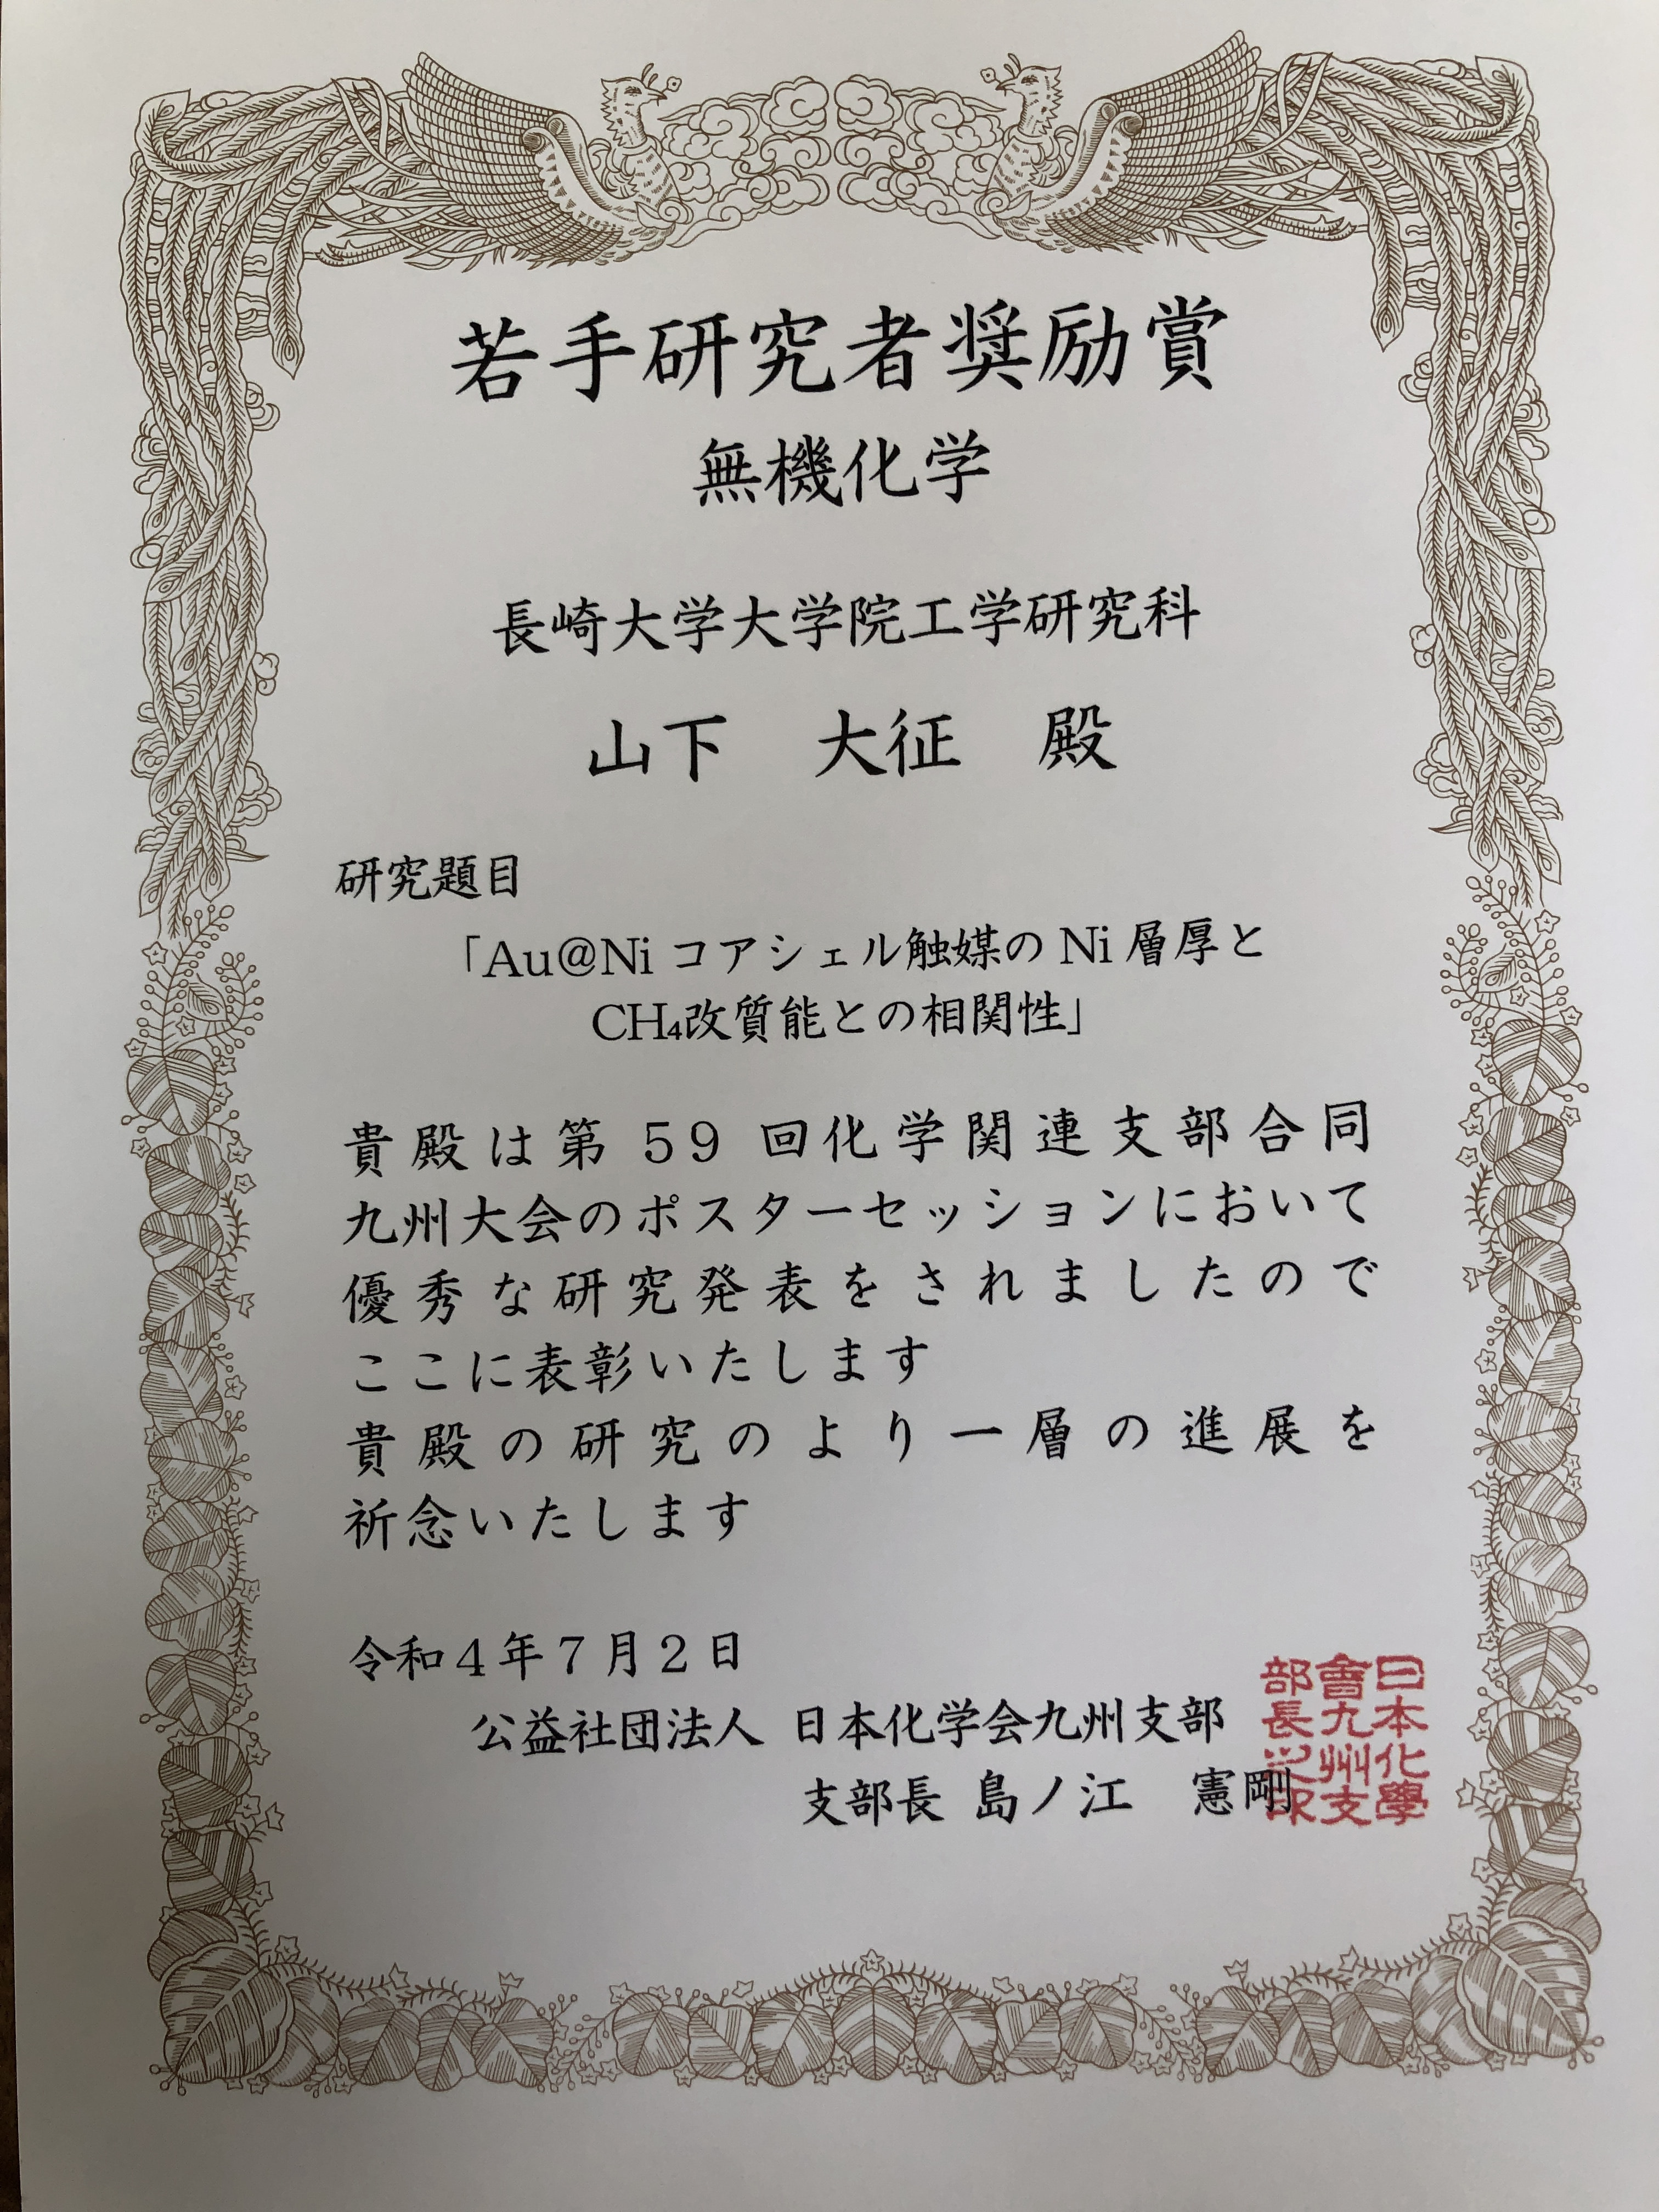 若手研究者奨励賞
無機化学
長崎大学大学院工学研究科
山下　大征　殿
研究題目
「Au@Ni コアシェル触媒の Ni 層厚と
CH₄改質能との相関性」
貴殿は第 59 回化学関連支部合同
九州大会のポスターセッションにおいて
優秀な研究発表をされましたので
ここに表彰いたします
貴殿の研究のより一層の進展を
祈念いたします
令和４年７月２日
公益社団法人 日本化学会九州支部
支部長 島ノ江　憲剛
日本化學
會九州支
部長之印